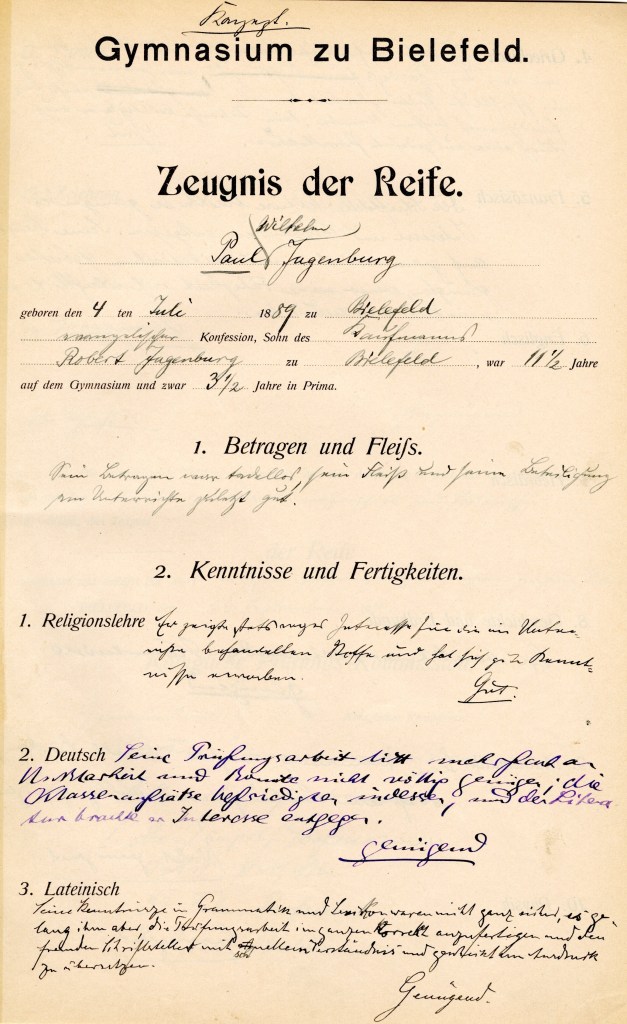 Konzept.
Gymnasium zu Bielefeld.
Zeugnis der Reife.
Wilhelm
Paul Jagenburg
geboren den 4 ten Juli 1889 zu Bielefeld
evangelischer Konfession, Sohn des Kaufmanns
Robert Jagenburg zu Bielefeld, war 11 1/2 Jahre
auf dem Gymnasium und zwar 3 1/2 Jahre in Prima.
1. Betragen und Fleiſs.
Sein Betragen war tadellos, sein Fleiß und seine Beteiligung
am Unterrichte zuletzt gut.
2. Kenntnisse und Fertigkeiten.
1. Religionslehre Er zeigte stets reges Interesse für die im Unter-
richte behandelten Stoffe und hat sich gute Kennt-
nisse erworben.
Gut.
2. Deutsch Seine Prüfungsarbeit litt mehrfach an
Unklarheit und konnte nicht völlig genügen; die
Klassenaufsätze befriedigten indessen, und der Litera
tur brachte er Interesse entgegen.
genügend
3. Lateinisch
Seine Kenntnisse in Grammatik und Lexikon waren nicht ganz sicher, es ge-
lang ihm aber, die Prüfungsarbeit im ganzen korrekt anzufertigen und den
fremden Schriftsteller mit schnellem Verständnis und gewandt im Ausdruck
zu übersetzen.
Genügend.